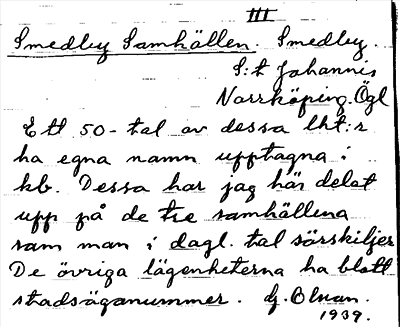 III
Smedby Samhällen. Smedby.
S:t Johannis
Norrköping. Ögl
Ett 50-tal av dessa lht:r
ha egna namn upptagna i
kb. Dessa har jag här delat
upp på de tre samhällena
som man i dagl. tal särskiljer
De övriga lägenheterna ha blott
stadsäganummer. G. Olman.
1939.